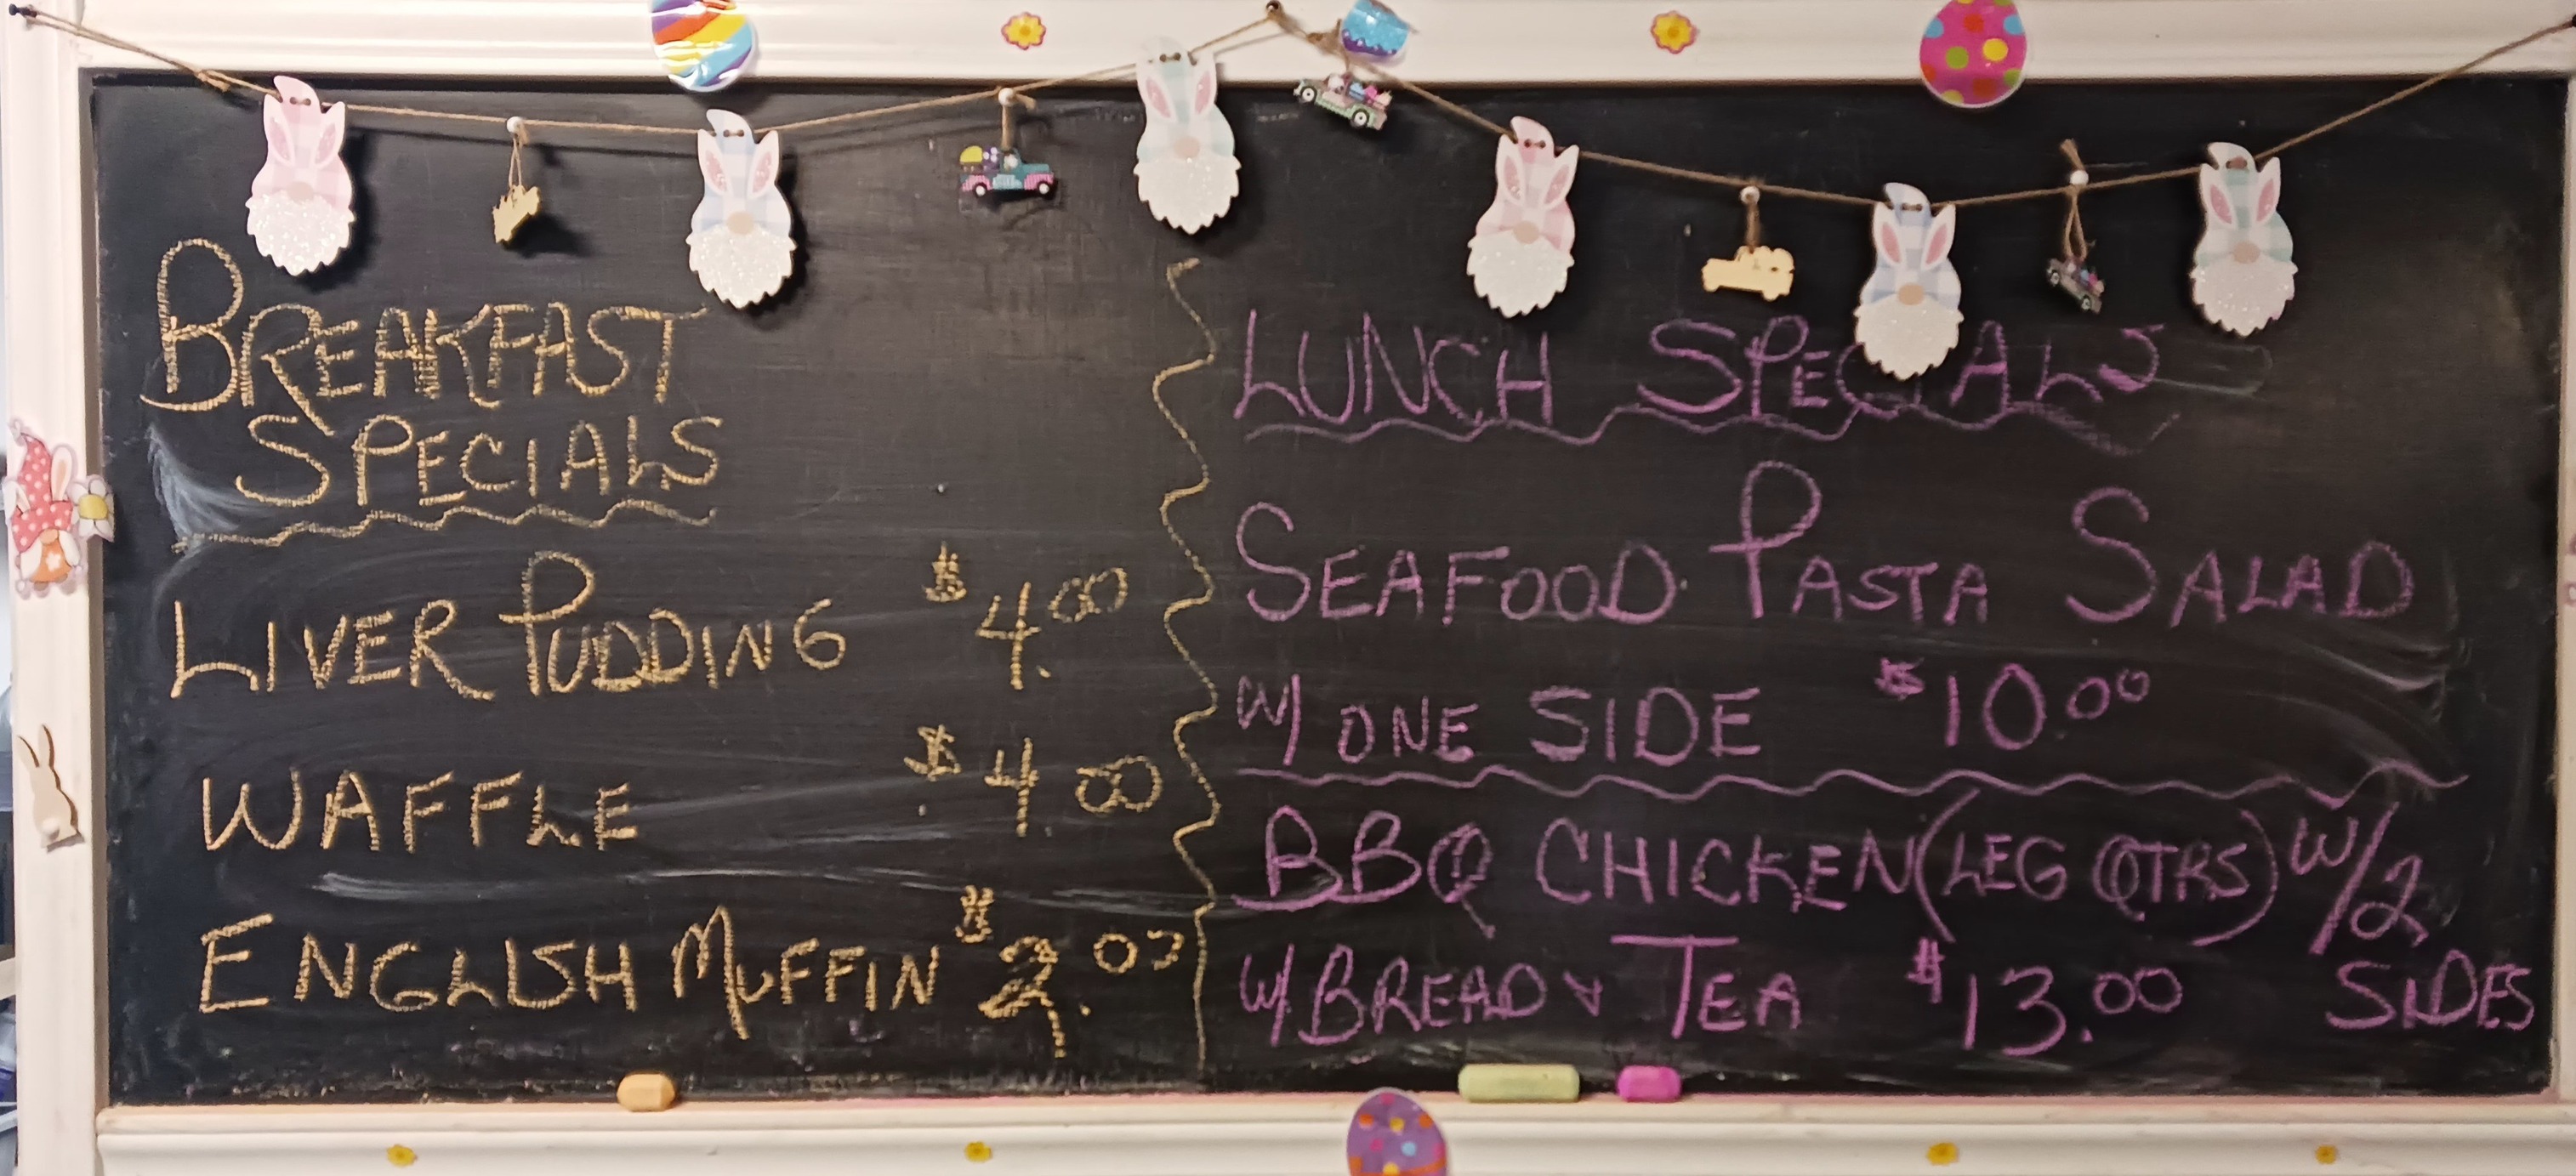 BREAKFAST
SPECIALS
LIVER PUDDING $4.00
WAFFLE $4.00
ENGLISH MUFFIN $2.00
LUNCH SPECIALS
SEAFOOD PASTA SALAD
W/ ONE SIDE $10.00
BBQ CHICKEN (LEG QTRS) W/2
W/BREAD & TEA $13.00 SIDES